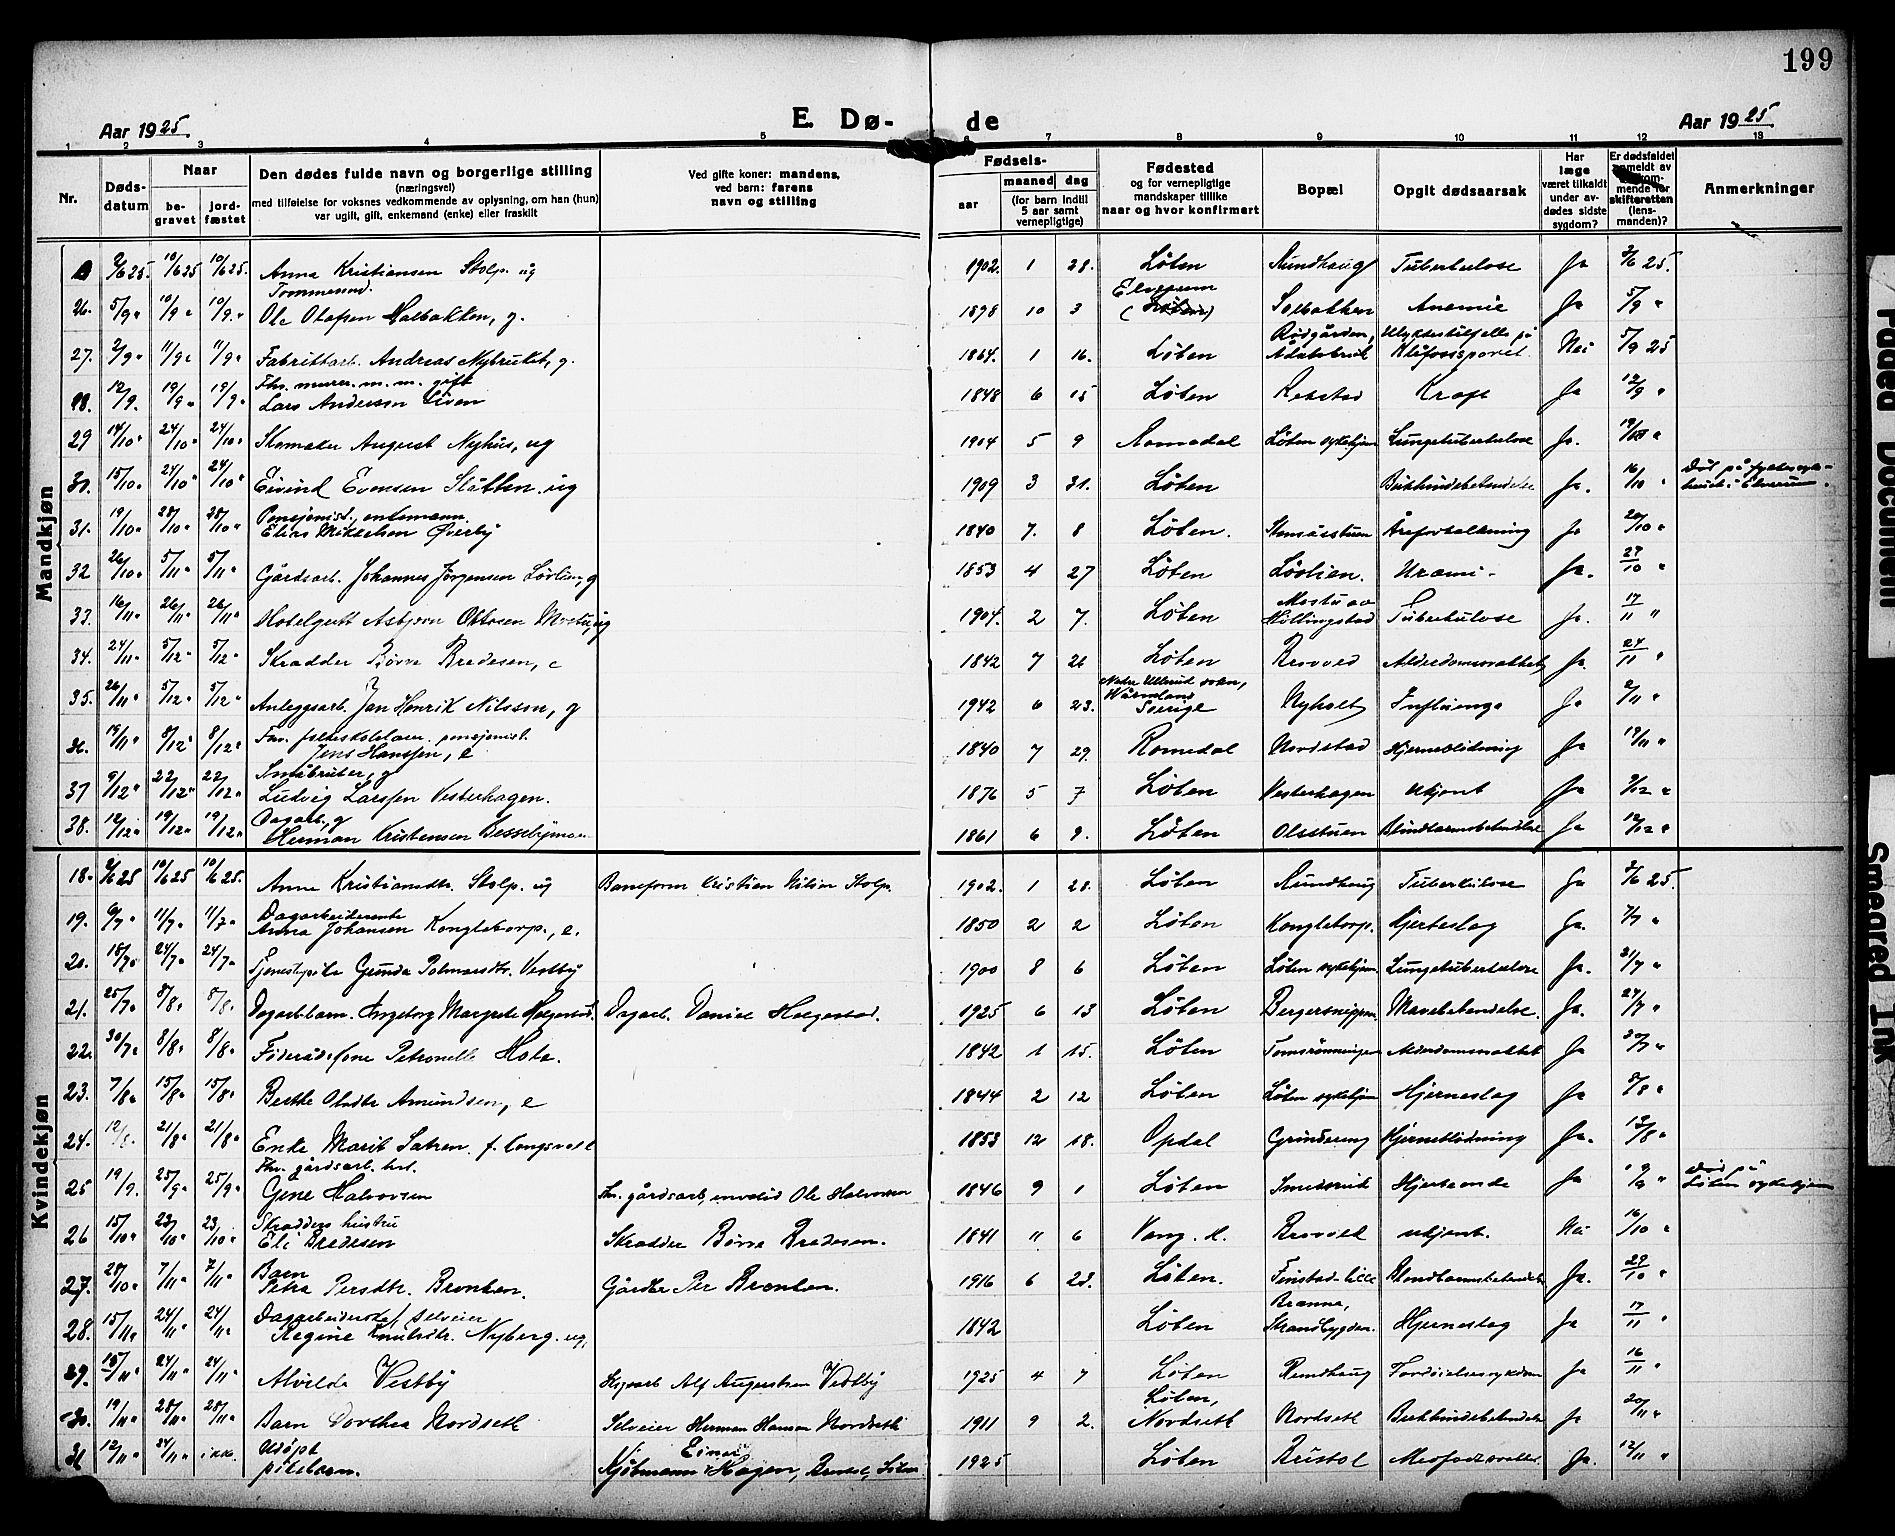 199
Aar 1925. E. Dø- de Aar 1925.
1 2 3 4 5 6 7 8 9 10 11 12 13
Nr. Døds-datum Naar be-gravet jord-fæstet Den dødes fulde navn og borgerlige stilling (næringsvei) med tilføielse for voksnes vedkommende av oplysning, om han (hun) var ugift, gift, enkemand (enke) eller fraskilt Ved gifte koner: mandens, ved barn: farens navn og stilling Fødsels- aar maaned dag (for barn indtil 5 aar samt vernepligtige) Fødested og for vernepligtige mandskaper tillike naar og hvor konfirmert Bopæl Opgit dødsaarsak Har læge været tilkaldt under av-dødes sidste sygdom? Er dødsfaldet anmeldt av skifteretten (lens-manden)? Anmerkninger
Mandkjøn
9/6 25. 10/6 25 10/6 25. Anna Kristiansen Stolp. ug 1902. 1 28. Løten Rundhaug Tuberkulose Ja 25.
Tommermd. Elverum
26. 5/9 " 10/9 " 10/9 " Ole Olafsen Malbakken, g. 1898 10 3 Solbakken Anemie Ja 5/9 "
Rødgården, Ulykkestilfelle på
27. 2/9 " 11/9 " 11/9 " Fabrikkarb. Andreas Nybruket, g. 1864. 1 16. Løten Ådalsbruk Klæfossporet. Nei 5/9 25
Fhv. murer. m. m. gift
28. 12/9. 19/9 " 19/9 " Lars Andersen Liven 1848 6 15 Løten Rokstad Kræft Ja 12/9 "
29 14/10 " 24/10 " 24/10 " Skomaker August Nyhus, ug 1904 5 9 Romedal Løten sykehjem Lungetuberkulose Ja.
30. 15/10 " 24/10 " 24/10 " Eivind Evensen Slåtten. ug 1909 3 31. Løten Bukhindebetendelse Ja. 16/10 " Død på fylkessyke-
hus i Elverum.
Pensjonist, enkemann
31. 19/10 " 28/10 " 28/10 " Elias Mikkelsen Øverby 1840 7. 8 Løten. Stensåsstuen Åreforkalkning Ja 20/10 "
32 26/10 " 5/11 " 5/11 " Gårdsarb. Johannes Jørgensen Lövlien, g 1853 4 27 Löten Lövlien. Uræmi. Ja. 27/10 "
Mostu av
33. 16/11 " 26/11 " 26/11 " Hotelgutt Asbjørn Ottosen Mostu, ug 1904. 2 7. Løten Hellingstad Tuberkulose Ja. 17/11 "
34. 24/11 " 5/12 " 5/12 " Skrædder Børre Bredesen, e 1842 7 26 Løten Rrovold Alderdomssvakhet Ja. 27/11 "
Nedre Ullerud sokn,
Wärmland
35. 26/11 " 5/12 " 5/12 " Anleggsarb. Jan Henrik Nilsson, g 1942 6 23. Sverige Nyholt Influenza Ja
Fhv. folkeskolelærer. pensjonist.
36. 14/11 " 8/12 " 8/12 " Jens Hanssen, e 1840 7 29. Romedal Nordstad Hjerneblödning Ja 19/11 "
Småbruker, g
37 9/12 " 22/12 " 22/12 " Ludvig Larssen Vesterhagen. 1876 5 7 Løten Vesterhagen Ukjent Ja
Dagarb., g
38. 12/12 " 19/12 " 19/12 " Herman Kristensen Bessebymoen 1861 6 9. Løten Olsstuen Blindtarmsbetendelse Ja 12/12 "
Kvindekjøn
18. 9/6 25 10/6 25 10/6 25. Anna Kristiansdtr. Stolp. ug Baneform Kristian Stolp. 1902. 1 28. Løten Rundhaug Tuberkulose Ja 25.
Dagarbeiderenke
19. 6/7 " 11/7 " 11/7 " Anna Johansen Kongletorp., e. 1850 2 2 Løten Kongletorp. Hjerteslag Ja. 7/7 "
20. 18/7 " 24/7 " 24/7 " Tjenestepike Gunda Palmarsdtr. Vestby 1900 8 6 Løten Løten sykehjem Lungetuberkulose Ja. 21/7 "
21. 25/7 " 8/8 " 8/8 " Dagarb.barn. Ingeborg Margrete Helgestad. Dagarb. Daniel Helgestad. 1925 6 13 Løten Bergersnippen Mavebetendelse. Ja. 27/7 "
22. 30/7 " 8/8 " 8/8 " Föderådskone Petronelle Hole. 1842 1 15. Løten Tomsrønningen Alderdomssvakhet Ja 30/7 "
23. 7/8 " 15/8 " 15/8 " Berthe Olsdtr Amundsen, e 1844 2 12 Løten Løten sykehjem Hjerneslag Ja 8/8 "
24. 12/8. 21/8 " 21/8 " Enke Marit Sætren. f. Congsvold 1853 12 18. Opdal Grindereng Hjerneblödning Ja. 13/8 "
Fhv. gårdsarb. hst.
25 19/9. 25/9 " 25/9 " Gine Halvorsen Fhv. gårdsarb, invalid Ole Halvorsen 1846 9 1 Løten Smedsrud Hjerteonde Ja Død på
Løten sykehjem
Skrædders hustru
26 15/10 " 23/10 " 23/10 " Eli Bredesen Skrædder Børre Bredesen. 1841 11 6 Vang. H. Rrovold ukjent. Nei 16/10 "
Barn
27. 28/10 " 7/11 " 7/11 " Petra Persdtr. Brenken. Gårdbr Per Brenken. 1916 6 23. Löten. Finstad-lille Blindtarmsbetendelse Ja. 29/10 "
Dagarbeiderske / selveier Brænna,
28. 15/11 " 24/11 " 24/11 " Regine Knutsdtr. Nyberg. ug, 1842 Løten Strandbygden. Hjerneslag Ja 17/11 "
29. 15/11 " 24/11 " 24/11 " Alvilda Vestby Alf Augustsen Vestby 1925 4 7 Løten Rundhaug Fordöielsessykdom Ja 16/11 "
Løten,
30. 19/11 " 28/11 " 28/11 " Barn Dorthea Nordsett Selveier Herman Hansen Nordsett 1911 9 2. Nordsett Nordsett Bukhindebetendelse Ja 20/11 "
Udöpt Einar
31 12/11 " 24/11 " ikke. pikebarn. Kjøbmann Hagen, Løten 1925 Løten Bristol Ja. 12/11 "
Faded Document
Smeared Ink